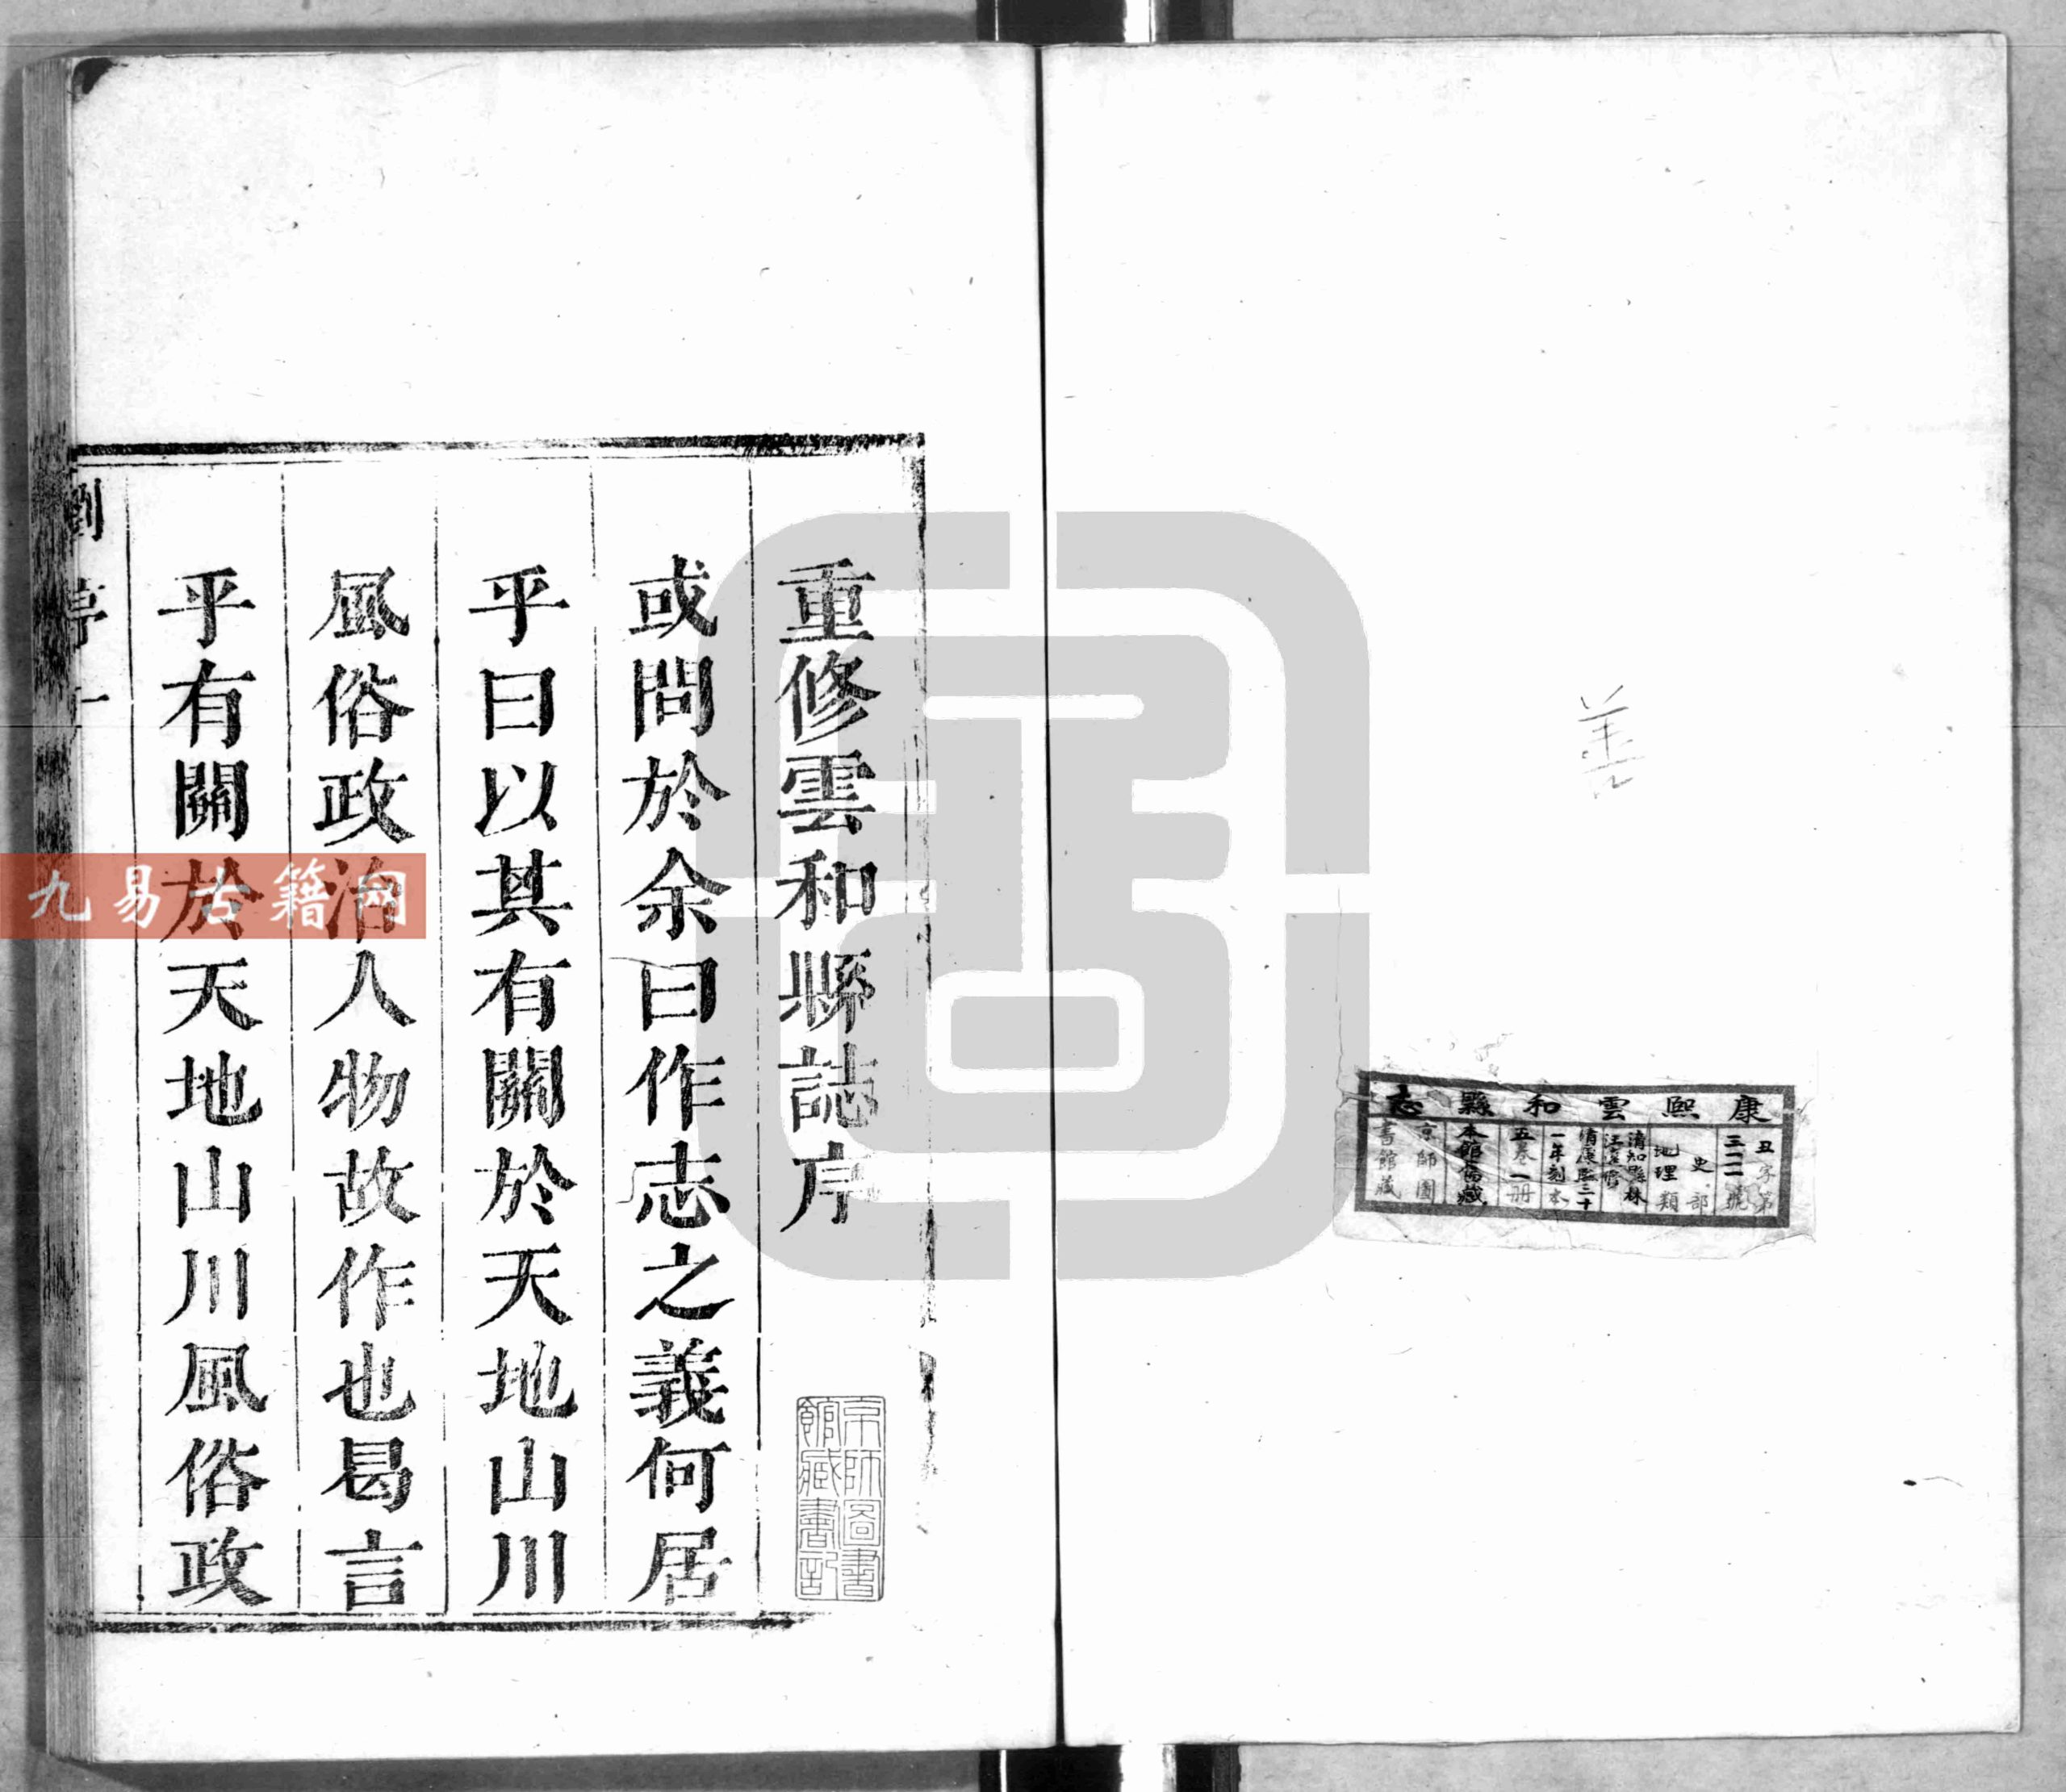 善
康熙雲和縣志
丑字第
三二一號
史部
地理類
清知縣林
汪遠修
清康熙三十
一年刻本
五卷一册
本館舊藏
京師圖
書館藏
重修雲和縣誌序
京師圖書
館藏書記
或問於余曰作志之義何居
乎曰以其有關於天地山川
風俗政治人物故作也曷言
乎有關於天地山川風俗政
劉序一
九易古籍网